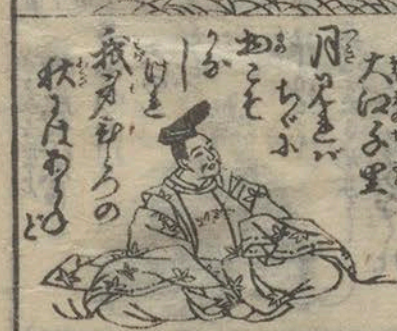 大江千里
月見れば
ちゞに
物こそ
かな
しけれ
我身ひとつの
秋にはあらねど